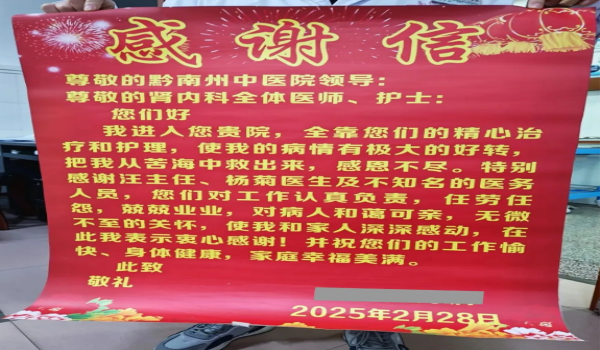 感谢信
尊敬的黔南州中医院领导：
尊敬的肾内科全体医师、护士：
您们好
我进入您贵院，全靠您们的精心治
疗和护理，使我的病情有极大的好转，
把我从苦海中救出来，感恩不尽。特别
感谢汪主任、杨菊医生及不知名的医务
人员，您们对工作认真负责，任劳任
怨，兢兢业业，对病人和蔼可亲，无微
不至的关怀，使我和家人深深感动，在
此我表示衷心感谢！并祝您们的工作愉
快、身体健康，家庭幸福美满。
此致
敬礼
2025年2月28日